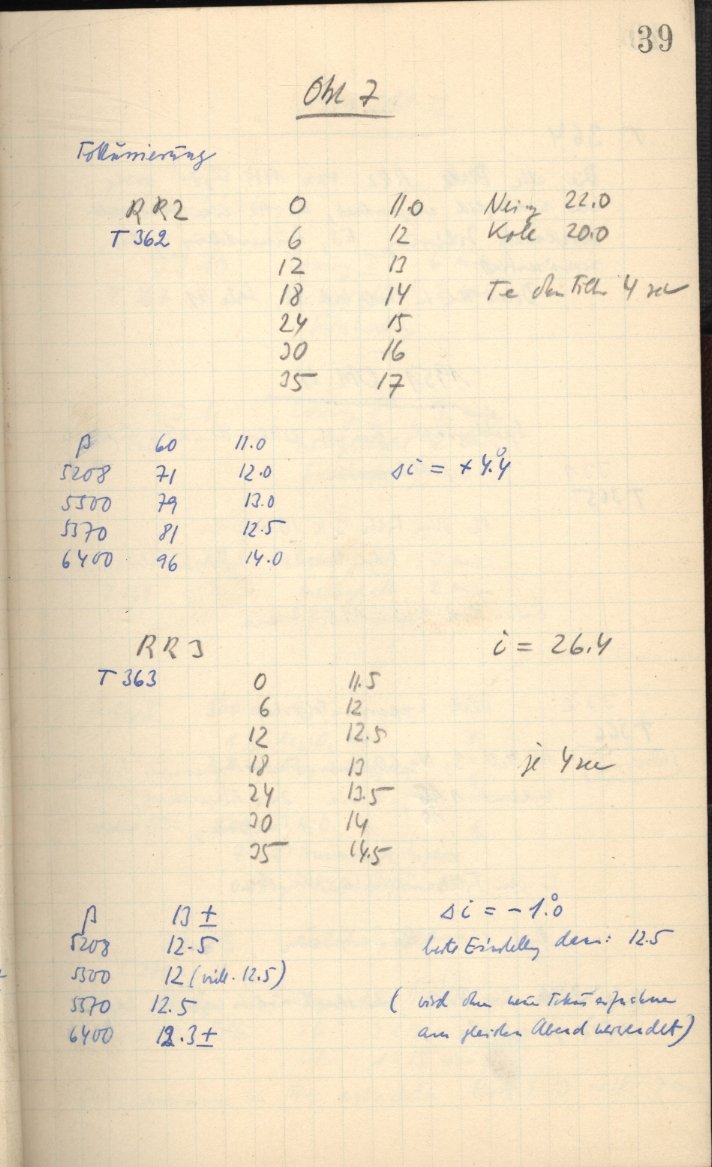 39
Okt 7
Fokussierung
RR2 0 11.0 Neig 22.0
T 362 6 12 20.0
12 13
18 14 4 sec
24 15
30 16
35 17
β 60 11.0
5208 71 12.0 Δi = + 4°.4
5300 79 13.0
5570 81 12.5
6400 96 14.0
RR3 i = 26.4
T 363 0 11.5
6 12
12 12.5
18 13 je 4 sec
24 13.5
30 14
35 14.5
β 13 ± Δi = - 1°.0
5208 12.5 beste Einstellung dann: 12.5
5300 12 (viell. 12.5)
5570 12.5 (wird ohne neue Fokusaufnahme
6400 12.3 ± am gleichen Abend verwendet)